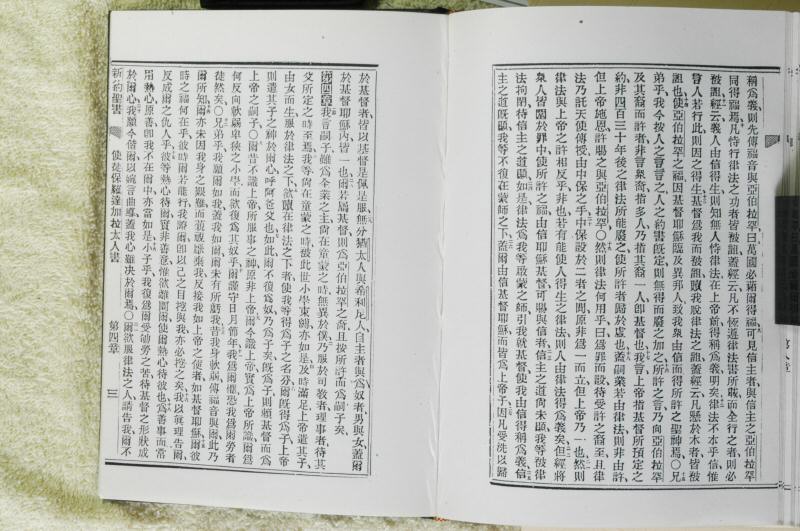 稱爲義則先傳福音與亞伯拉罕曰萬國必藉爾得福可見信主者與信主之亞伯拉罕
同得福焉凡恃行律法之功者皆被詛經云凡不恆遵律法書所載而全行之者則必
被詛經云義人由信得生則知無人恃律法在上帝前得稱爲義明矣律法不本乎信惟
曾人若行此則因之得生基督爲我而被詛贖我脫律法之詛蓋經云凡懸於木者皆被
詛也使亞伯拉罕之福因基督耶穌臨及異邦人致我衆由信而得所許之聖神焉○兄
弟乎我今按人之言言之人之約書旣定則無得而廢之加之所許之言乃向亞伯拉罕
及其裔而許者非言衆裔指多人乃指其裔一人卽基督也我言上帝指基督所預定之
約非四百三十年後之律法所能廢之使所許者歸於虛也蓋嗣業若由律法則非由許
但上帝施恩許賜之與亞伯拉罕○然則律法何用乎曰爲罪而設待受許之裔至且律
法乃託天使傳授由中保之手中保設於二者之間原非爲一而立但上帝乃一也然則
律法與上帝之許相反乎非也若有能使人得生之律法則由律法得稱爲義矣但經將
衆人皆圈於罪中使所許之福由信耶穌基督可賜與信者信主之道尚未顯我等被律
法拘閉待信主之道顯如是律法爲我等啟蒙之師引我就基督使我由信得稱爲義信
主之道旣顯我等不復在蒙師之下蓋爾由信基督耶穌而皆爲上帝子因凡受洗以歸
於基督者皆以基督是佩是服無分猶太人與希利尼人自主者與爲奴者男與女蓋爾
於基督耶穌內皆一也爾若屬基督則爲亞伯拉罕之裔且按所許而爲嗣子矣
第四章我言嗣子雖爲全業之主尚在童蒙之時無異於僕乃服於司敎者理事者待其
父所定之時至焉我等尚在童蒙之時被此世小學束縛亦如是及時滿足上帝遣其子
由女而生服於律法之下欲贖在律法之下者使我等得爲子之名分爾旣得爲子上帝
則遣其子之神於爾心呼阿爸父也如此爾不復爲奴乃爲子矣旣爲子則賴基督而爲
上帝之嗣子○爾昔不識上帝所服事之神原非上帝爾今識上帝實爲上帝所識爾爲
何反向軟弱卑狹之小學而欲復爲其奴乎爾謹守日月節年我爲爾懼恐我爲爾勞者
徒然矣○兄弟乎我願爾如我蓋我如爾爾未有所虧我昔我身軟弱傳福音與爾此乃
爾所知爾亦未因我身之艱難而藐視厭棄我反接我如上帝之使者如基督耶穌爾彼
時之福何在乎彼時爾若能行我證爾卽以己之目挖與我亦必挖之矣我以眞理告爾
反成爾之仇人乎彼等熱心待爾實非善意惟欲離間爾使爾熱心待彼也爲善事而常
用熱心原善卽我不在爾中亦當如是小子乎我復爲爾受劬勞之苦待基督之形狀成
於爾心我願今偕爾以婉言曲導蓋我心難決於爾焉○爾欲服律法之人請吿我爾不
新約聖書
使徒保羅達加拉太人書
第四章
三